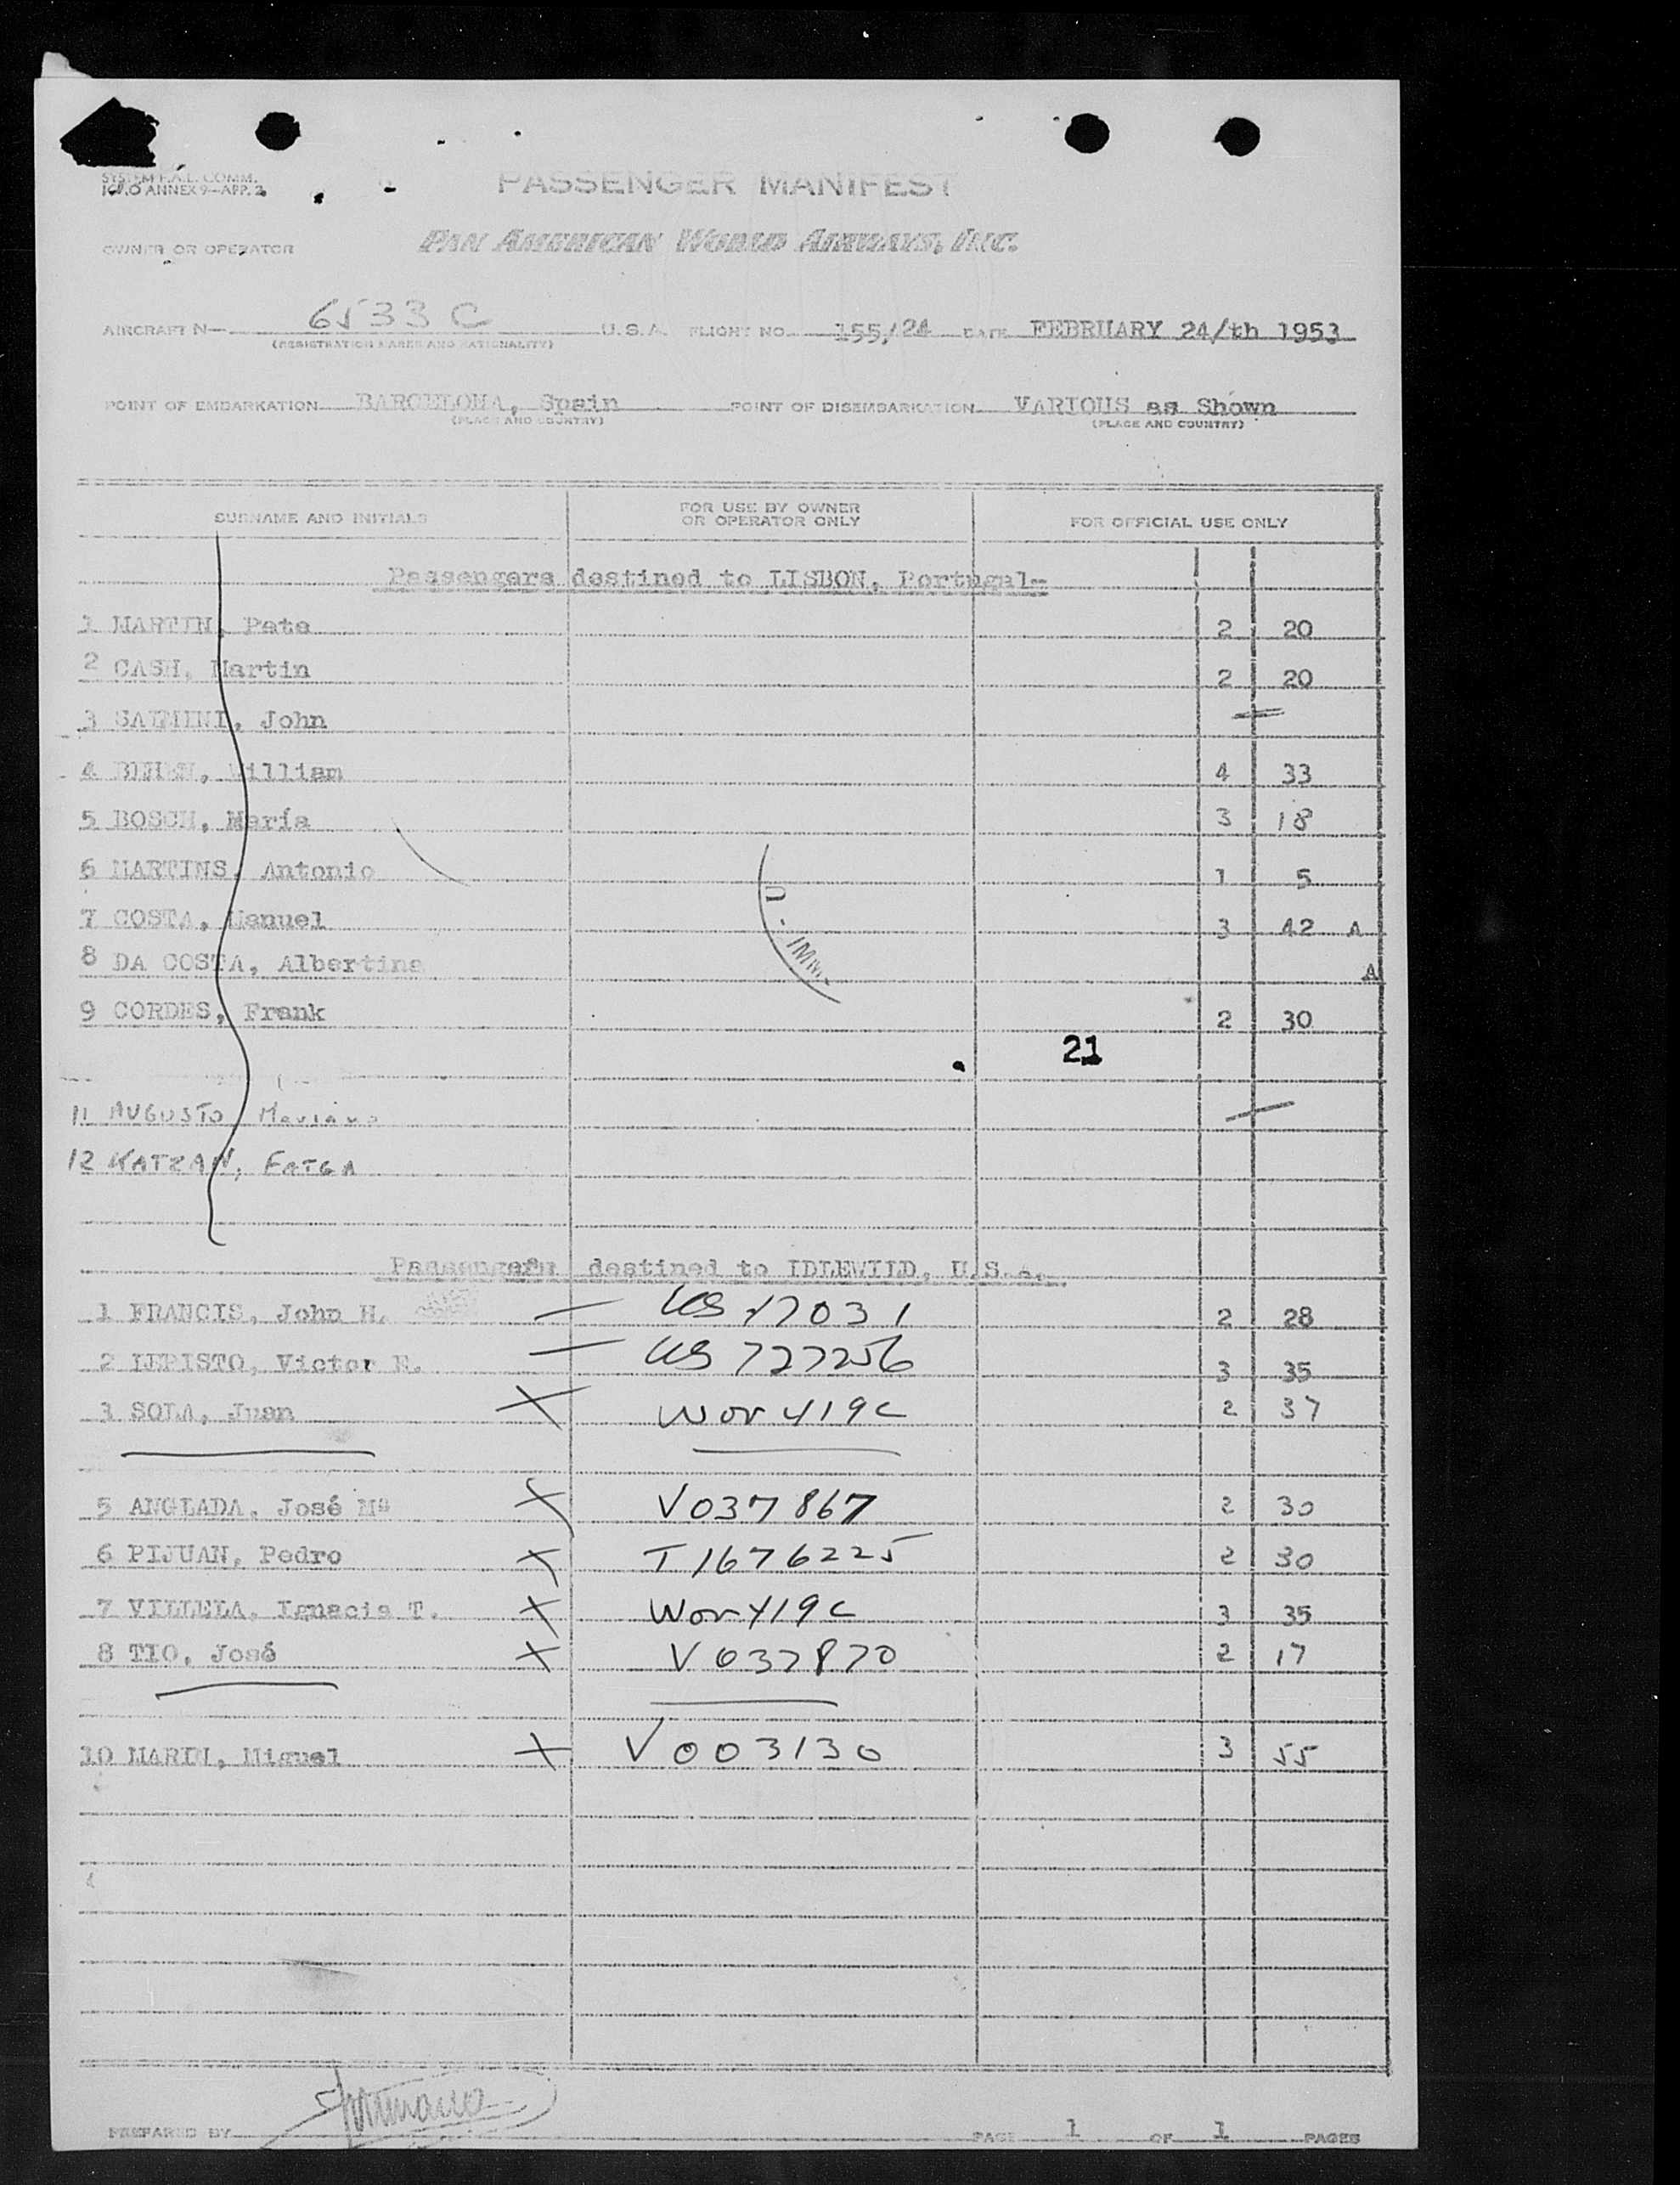 SYSTEM F.A.L. COMM.
ICAO ANNEX 9—APP. 2
PASSENGER MANIFEST
OWNER OR OPERATOR PAN AMERICAN WORLD AIRWAYS, INC.
AIRCRAFT N— 6533 C U.S.A. FLIGHT NO. 155/24 DATE FEBRUARY 24/th 1953
(REGISTRATION MARKS AND NATIONALITY)
POINT OF EMBARKATION BARCELONA, Spain POINT OF DISEMBARKATION VARIOUS as Shown
(PLACE AND COUNTRY) (PLACE AND COUNTRY)
SURNAME AND INITIALS FOR USE BY OWNER OR OPERATOR ONLY FOR OFFICIAL USE ONLY
Passengers destined to LISBON, Portugal--
1 MARTIN, Pete 2 20
2 CASH, Martin 2 20
3 John
4 William 4 33
5 BOSCH, María 3 18
6 MARTINS, Antonio 1 5
7 COSTA, Manuel 3 42 A
8 DA COSTA, Albertina A
U - IMM
9 CORDES, Frank 2 30
21
11 AUGUSTO, Mariano
12 KATZAN,
Passengers destined to IDLEWILD, U.S.A.
1 FRANCIS, John H. — US 17031 2 28
2 LEPISTO, Victor E. — US 727256 3 35
3 SOLA, Juan X Wor 419c 2 37
5 ANGLADA, José Mª X V037867 2 30
6 PIJUAN, Pedro X T1676225 2 30
7 VILLELA, Ignacia T. X Wor 419c 3 35
8 TIO, José X V037870 2 17
10 MARIN, Miguel X V003130 3 55
PREPARED BY PAGE 1 OF 1 PAGES